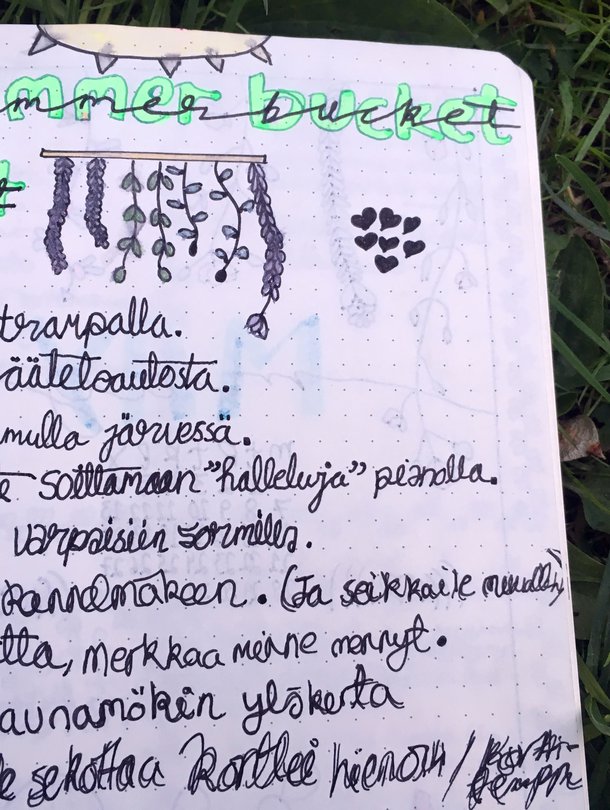 mmer bucket
t
trampalla.
äätelöautosta.
mulla järvessä.
e soittamaan "halleluja" pianolla.
varpaisiin sormilla.
kannelmäkeen. (Ja seikkaile muualla)
tta, merkkaa minne mennyt.
aunamökin yläkerta
e sekottaa kortteihienosti / kortti-